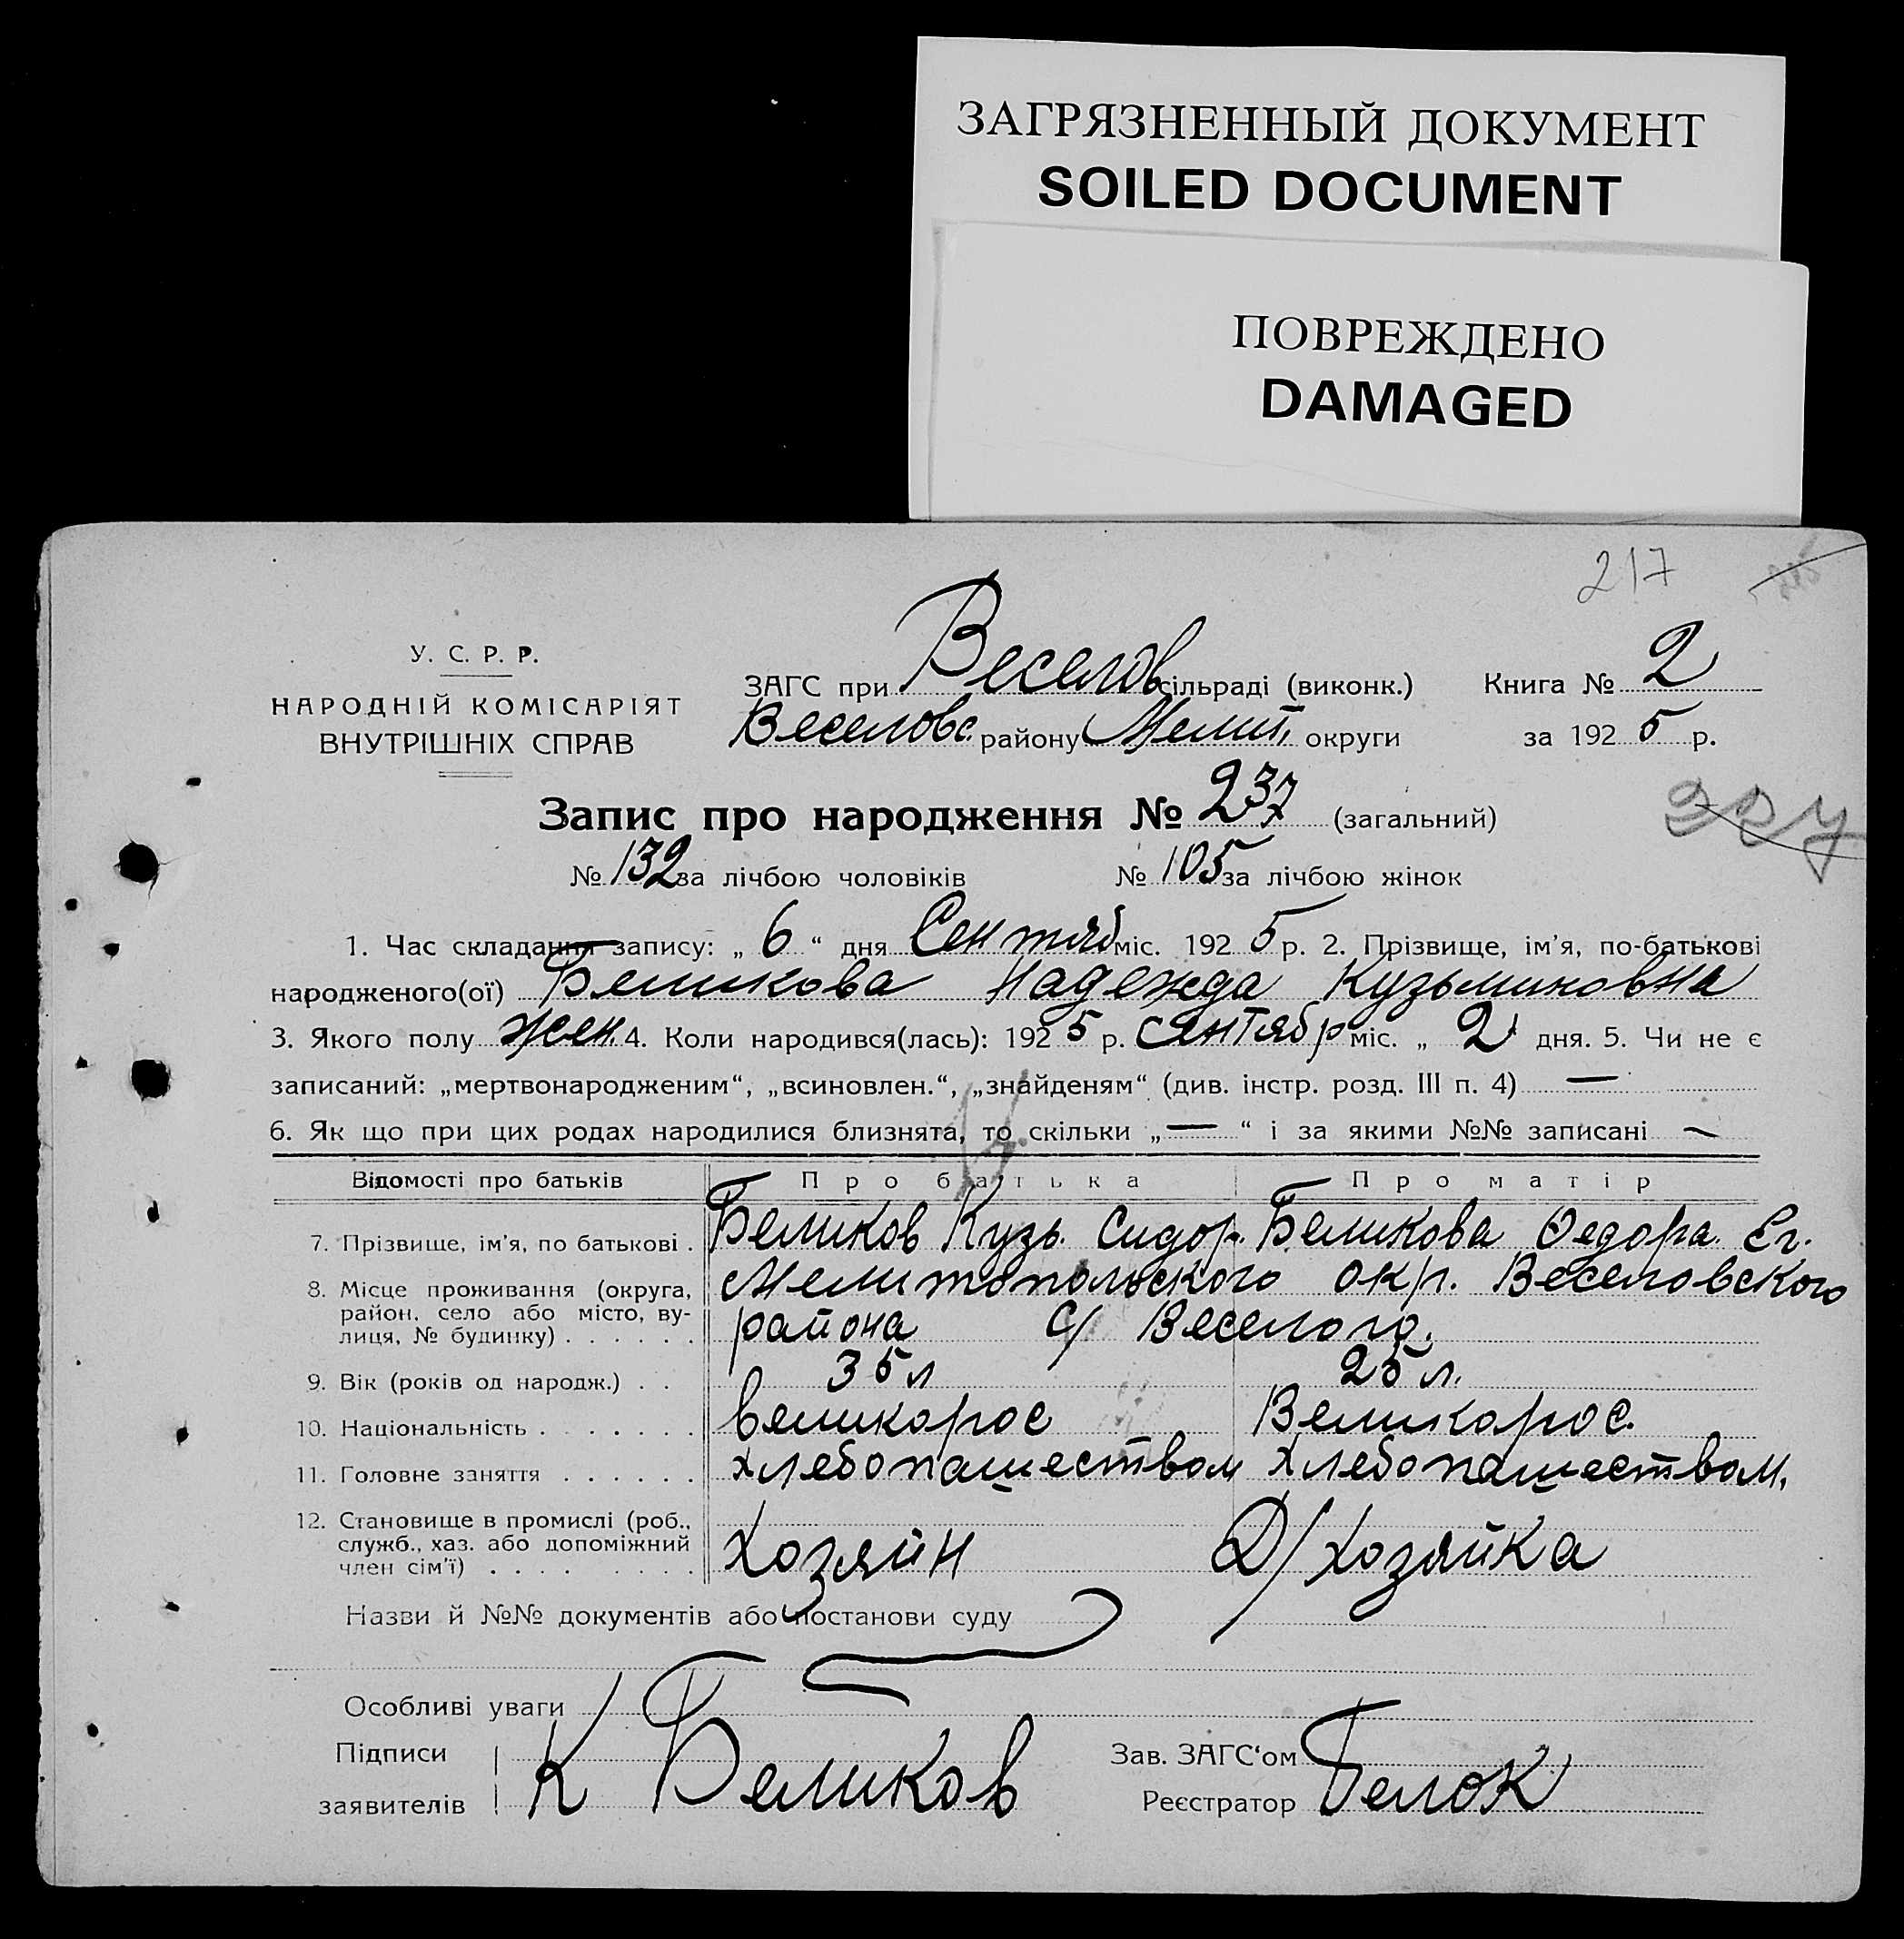 ЗАГРЯЗНЕННЫЙ ДОКУМЕНТ
SOILED DOCUMENT
ПОВРЕЖДЕНО
DAMAGED
217
У. С. Р. Р.
НАРОДНІЙ КОМІСАРІЯТ
ВНУТРІШНІХ СПРАВ
ЗАГС при Веселов сільраді (виконк.)
Веселовс. району Мелит. округи
Книга № 2
за 1925 р.
Запис про народження № 237 (загальний)
227
№ 132 за лічбою чоловіків № 105 за лічбою жінок
1. Час складання запису: „ 6 “ дня Сентяб міс. 1925 р. 2. Прізвище, ім’я, по-батькові
народженого(ої) Беликова Надежда Кузьминовна
3. Якого полу жен. 4. Коли народився(лась): 1925 р. сентябр міс. „ 2 дня. 5. Чи не є
записаний: „мертвонародженим“, „всиновлен.“, „знайденям“ (див. інстр. розд. III п. 4) —
6. Як що при цих родах народилися близнята, то скільки „ — “ і за якими №№ записані —
Відомості про батьків Про батька Про матір
7. Прізвище, ім’я, по батькові . Беликов Кузь. Сидор. Беликова Федора Ег.
8. Місце проживання (округа, Мелитопольского окр. Веселовского
район, село або місто, ву-
лиця, № будинку) . . . . . . района С/ Веселого.
9. Вік (років од народж.) . . 35 л 25 л.
10. Національність . . . . . . . великорос Великорос.
11. Головне заняття . . . . . . хлебопашеством хлебопашеством.
12. Становище в промислі (роб.,
служб., хаз. або допоміжний
член сім’ї) . . . . . . . . Хозяин Д/хозяйка
Назви й №№ документів або постанови суду
Особливі уваги
Підписи
заявителів К Беликов
Зав. ЗАГС‘ом
Реєстратор Белок